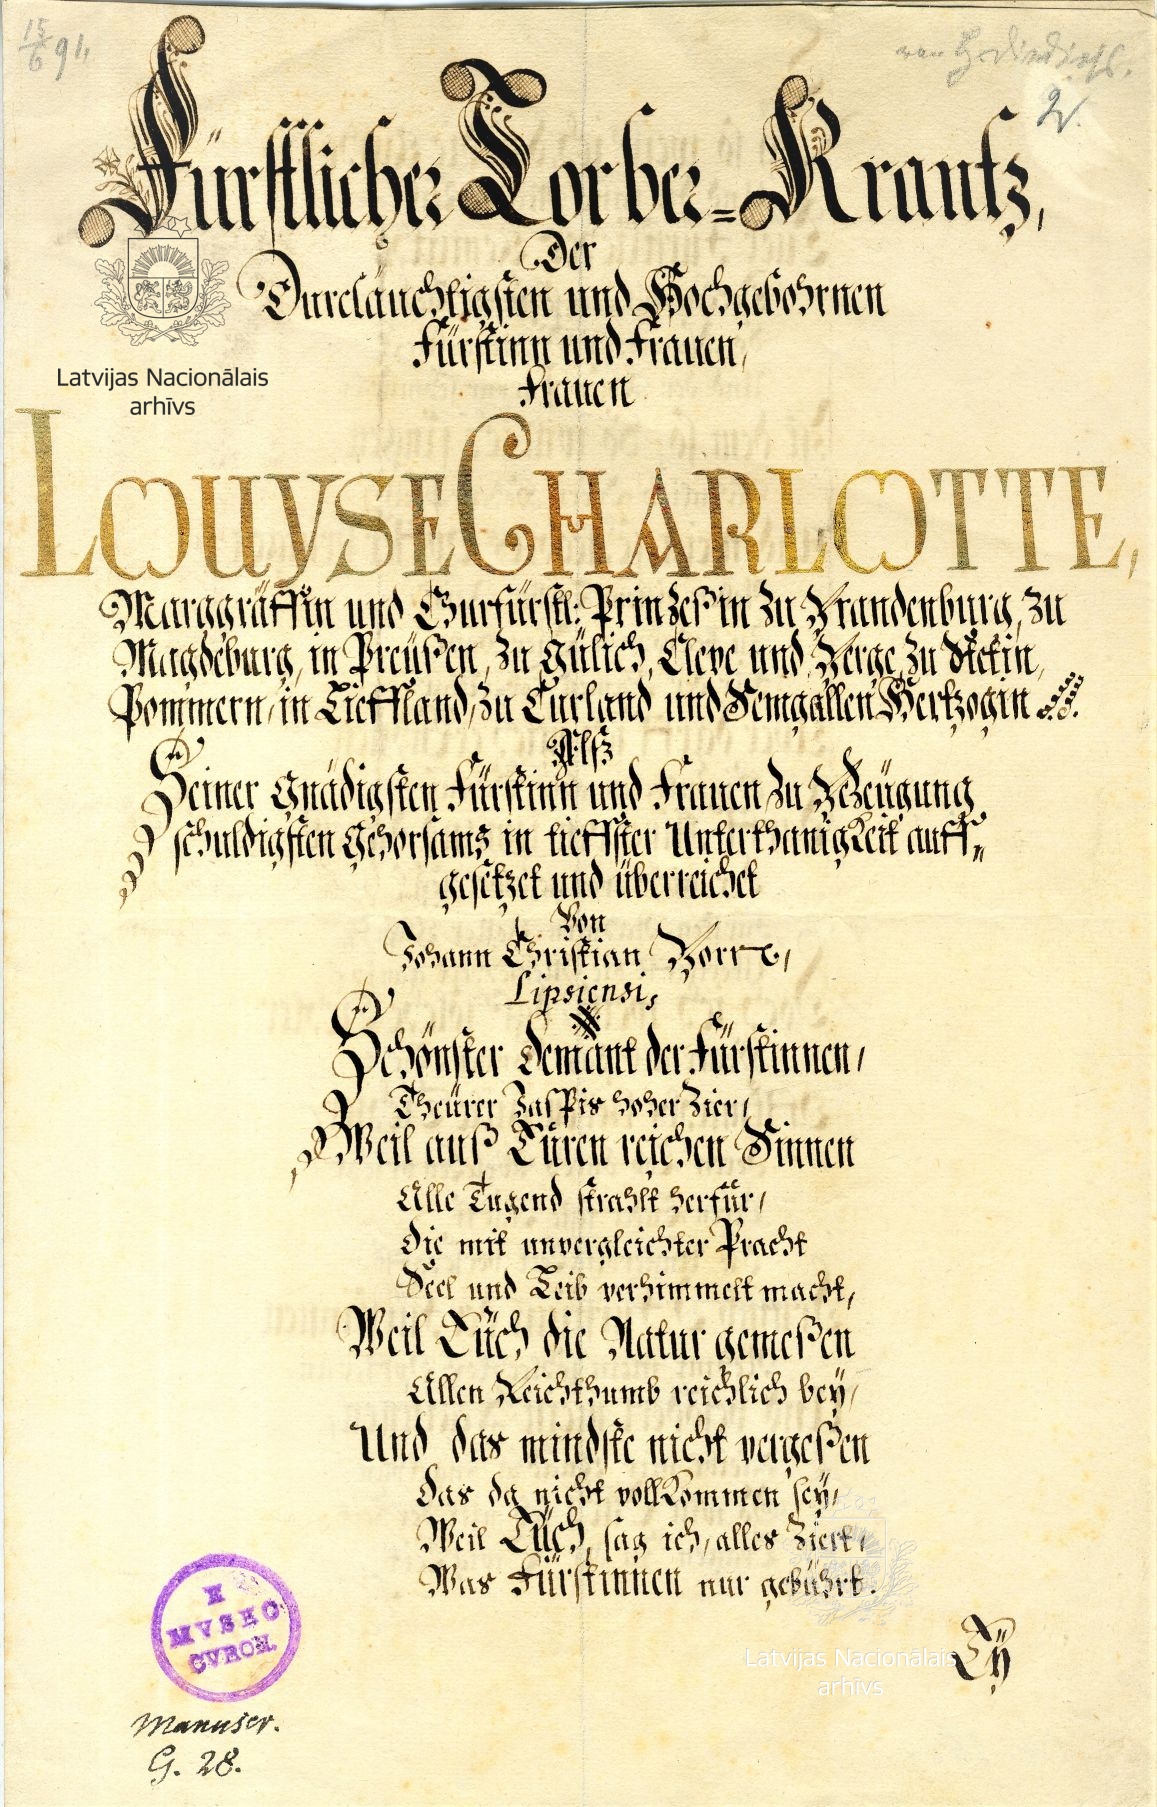 15/6 91.
2.
Fürstlicher Lorber=Krantz,
Der
Durcläuchtigsten und Hochgebohrnen
Fürstinn und Frauen,
Frauen
LOUYSE CHARLOTTE,
Marggräffin und Churfürstl: Prinzeßin zu Brandenburg, zu
Magdeburg, in Preüßen, zu Gülich, Cleve und Berge, zu Stetin,
Pommern, in Lieffland, zu Curland und Semgallen Hertzogin
Alß
Seiner Gnädigsten Fürstinn und Frauen zu Bezeügung
schuldigsten Gehorsams in tieffster Unterthänigkeit auff„
gesetzet und überreichet
Von
Johann Christian
Lipsiensi,
Schönster Demant der Fürstinnen,
Theürer Jaspis hoher Zier,
Weil auß Eüren reichen Sinnen
Alle Tugend strahlt herfür,
Die mit unvergleichter Pracht
Seel und Leib verhimmelt macht,
Weil Eüch die Natur gemeßen
Allen Reichthumb reichlich bey,
Und das mindste nicht vergeßen
Das da nicht vollkommen sey,
Weil Eüch, sag ich, alles Ziert,
Was Fürstinnen nur gebührt.
Ey
E
MVSEO
CVRON.
Manuscr.
G. 28.
Latvijas Nacionālais
arhīvs
Latvijas Nacionālais
arhīvs